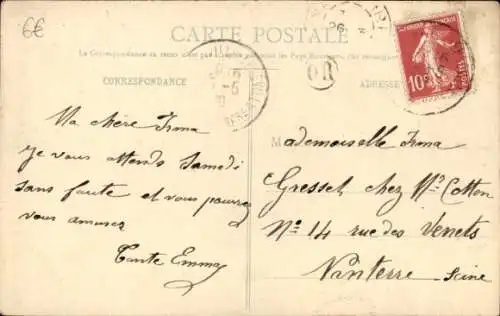 6€
CARTE POSTALE
La Correspondance au recto n'est pas acceptée par tous les Pays Étrangers
CORRESPONDANCE
ADRESSE
OR
10c
Ma chère Irma
je vous attends Samedi
sans faute et vous pourrez
vous amuser
Tante Emma
Mademoiselle Irma
Gresset chez Mr Cotton
No 14 rue des Venets
Nanterre Seine